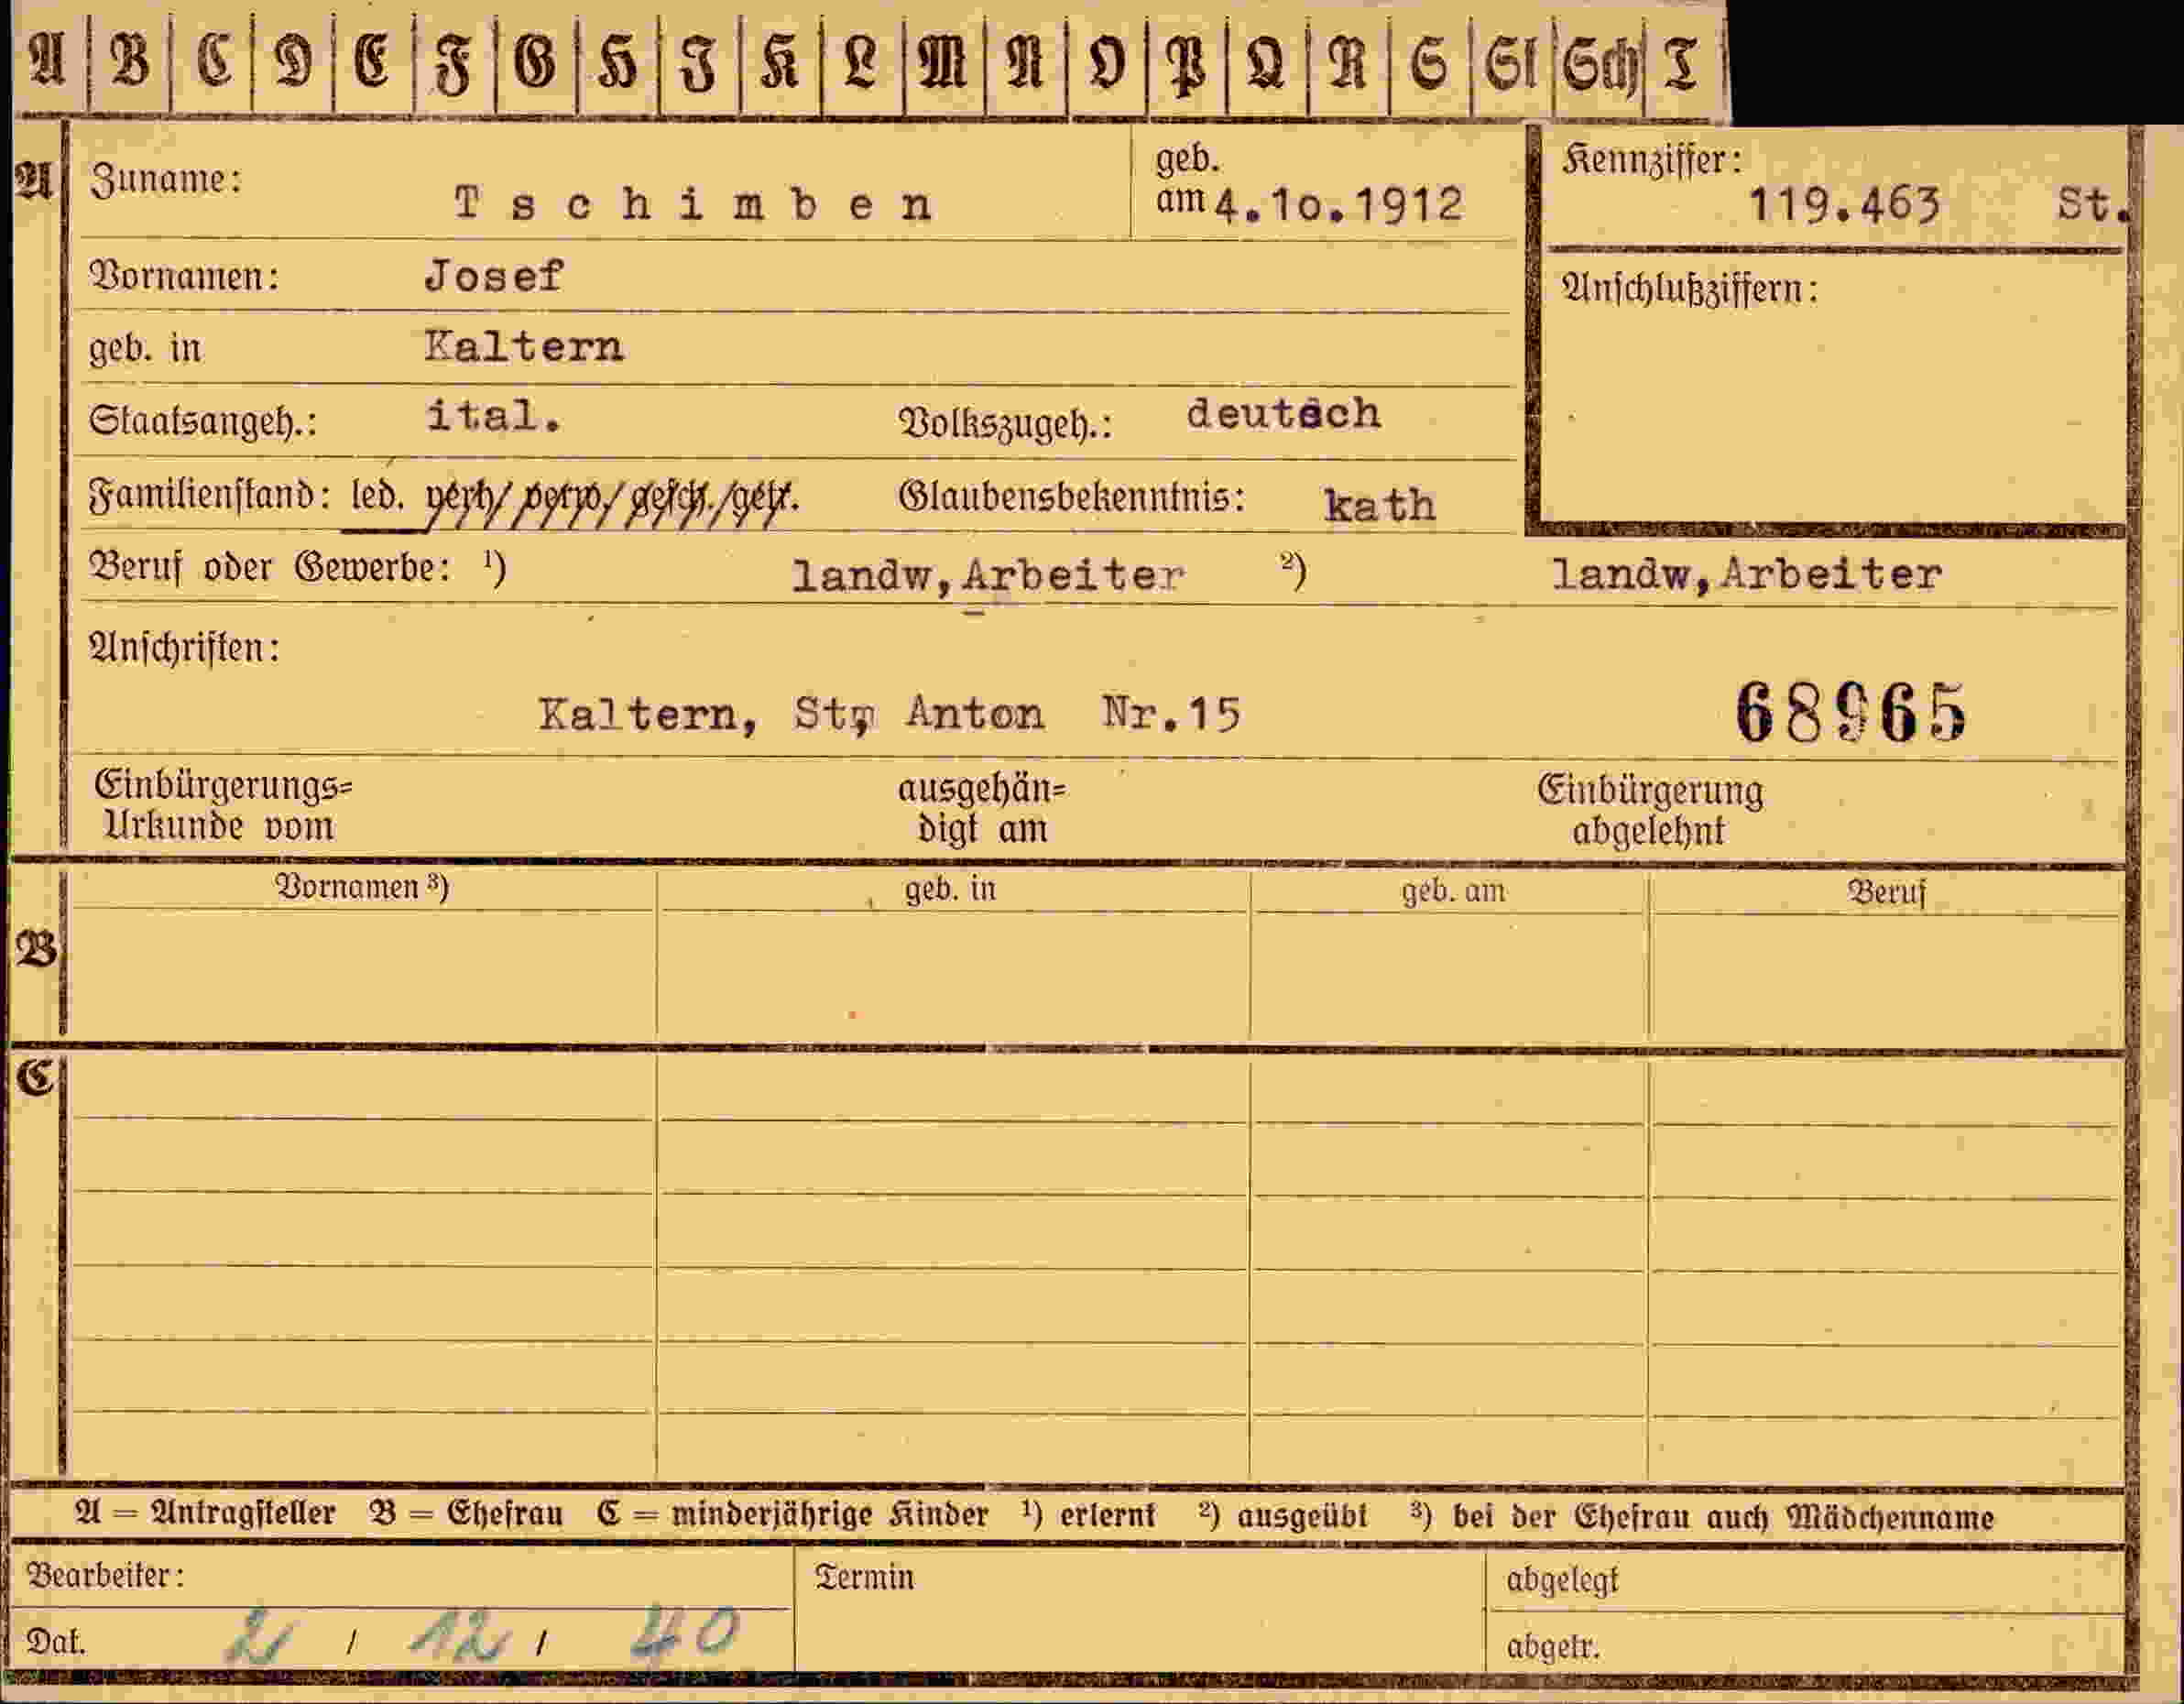 A B C D E F G H I K L M N O P Q R S St Sch T
A Zuname: Tschimben geb. am 4.10.1912 Kennziffer: 119.463 St.
Vornamen: Josef Anschlußziffern:
geb. in Kaltern
Staatsangeh.: ital. Volkszugeh.: deutsch
Familienstand: led. verh/ verw/ gesch./getr. Glaubensbekenntnis: kath
Beruf oder Gewerbe: ¹) landw,Arbeiter ²) landw,Arbeiter
Anschriften:
Kaltern, St, Anton Nr.15 68965
Einbürgerungs= ausgehän= Einbürgerung
Urkunde vom digt am abgelehnt
Vornamen ³) geb. in geb. am Beruf
B
C
A = Antragsteller B = Ehefrau C = minderjährige Kinder ¹) erlernt ²) ausgeübt ³) bei der Ehefrau auch Mädchenname
Bearbeiter: Termin abgelegt
Dat. 2 / 12 / 40 abgetr.